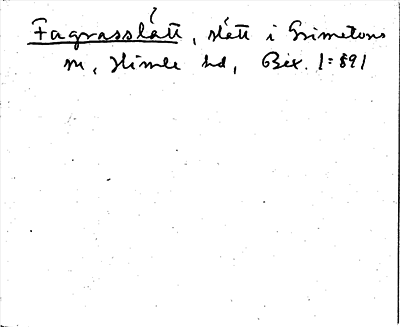 ?
Fagrasslått, slått i Grimetons
sn, Himle hd, Bex. 1:891